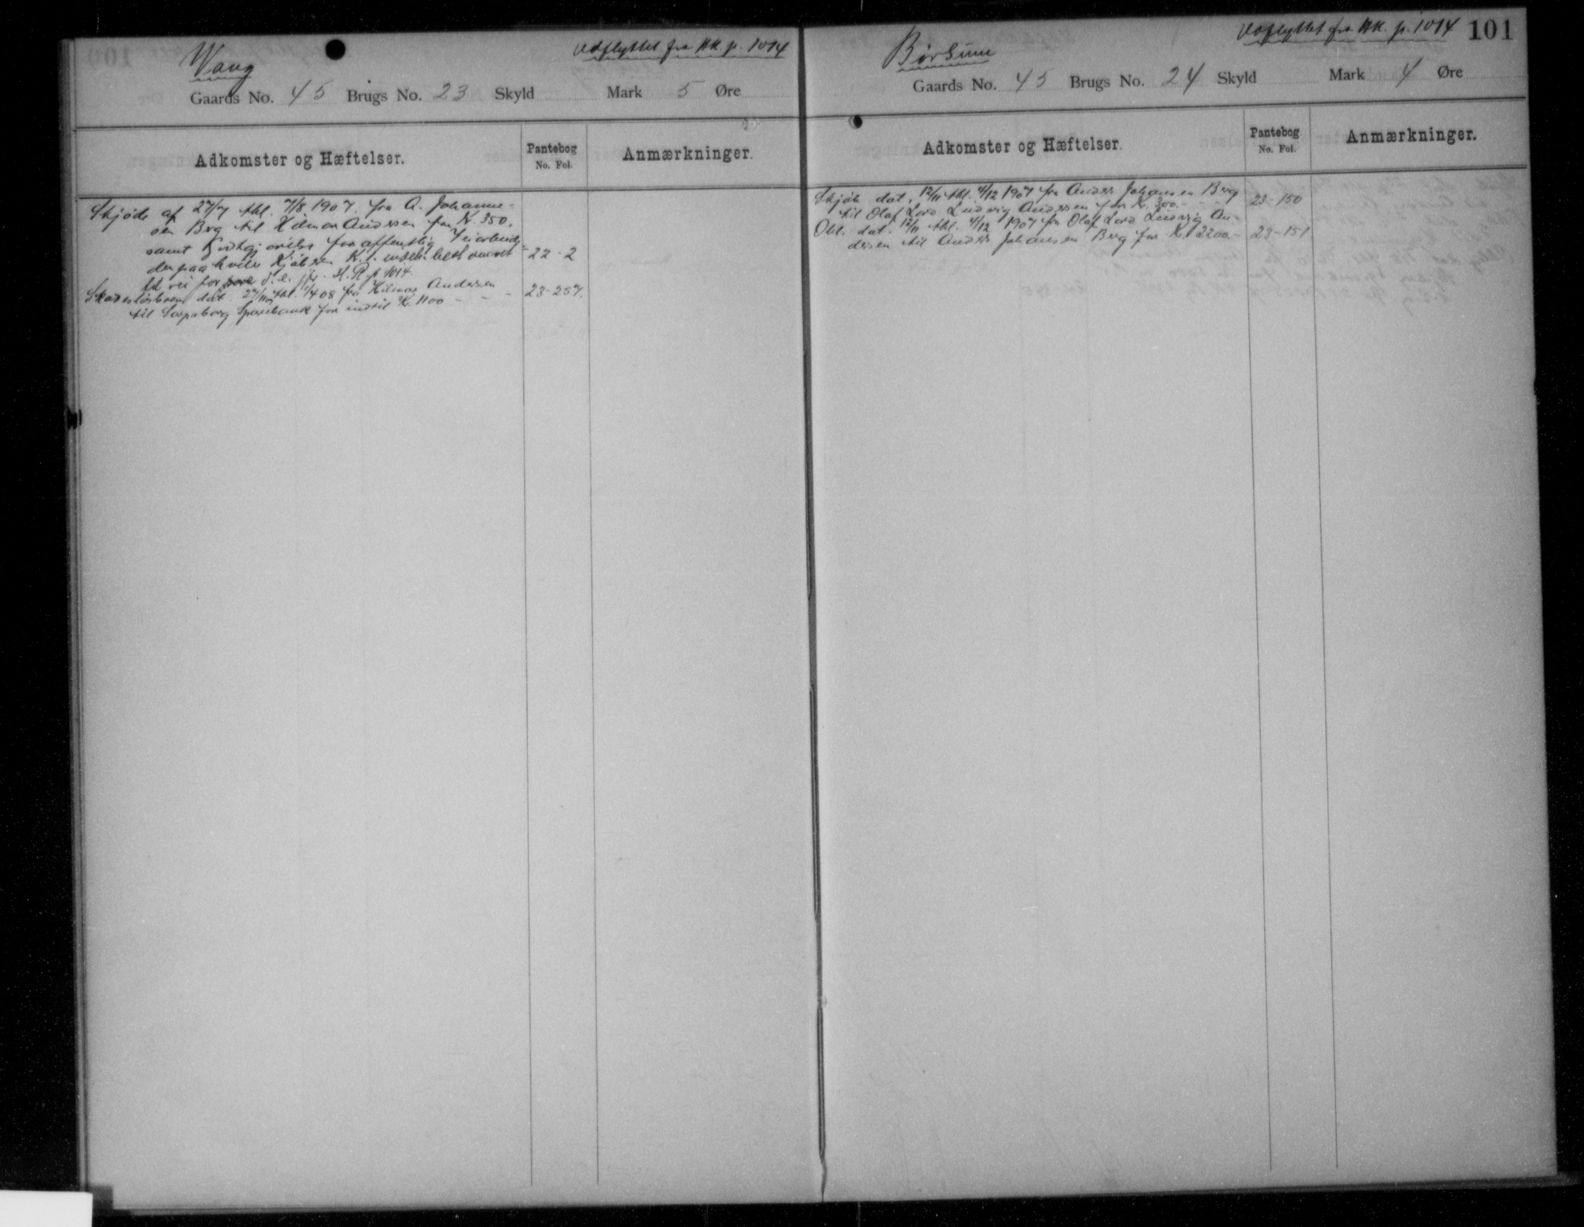 Wang
Udflyttet fra HK. p. 1014
Gaards No. 45 Brugs No. 23 Skyld Mark 5 Øre
Adkomster og Hæftelser.
Pantebog
No. Fol.
Anmærkninger.
Skjøde af 27/7 thl. 7/8 1907 fra A. Johanne-
sen Berg til Hilmar Andersen for K. 350.
samt for offentlig Veiarbeide
derpaa hviler Kjøberen
22 - 2
fd. vei for p. 1014.
Skadesløsbrev dat. thl. 08 fra Hilmar Andersen
23-257.
til Sarpsborg Sparebank for indtil K. 1100 - - -
101
Børsum
Udflyttet fra HK. p. 1014
Gaards No. 45 Brugs No. 24 Skyld Mark 4 Øre
Adkomster og Hæftelser.
Pantebog
No. Fol.
Anmærkninger.
Skjøde dat. 12/11 thl. 4/12 1907 fra Anders Johansen Berg
til Olaf Lord Ludvig Andersen for K. 300.-
23-150
Obl. dat. 12/11 thl. 4/12 1907 fra Olaf Lord Ludvig An-
dersen til Anders Johansen Berg for K. 2200.-
23-151